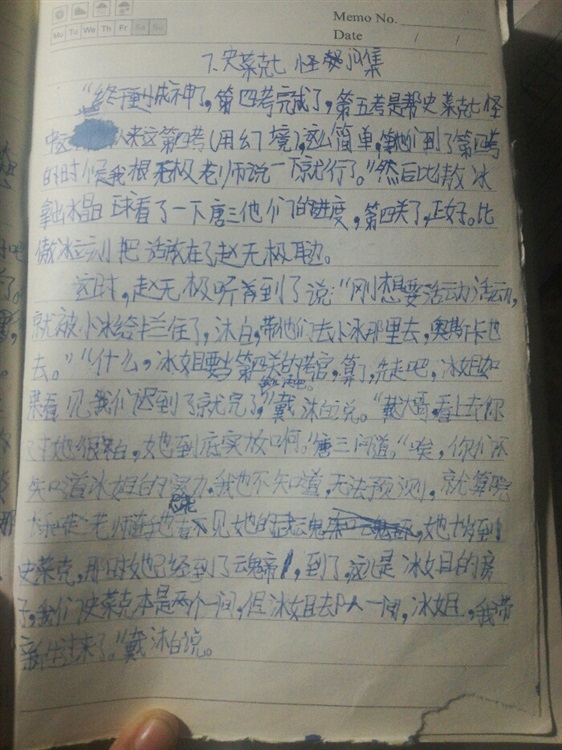 Memo No.
Mo Tu We Th Fr Sa Su
Date / /
7.史莱克七怪聚集
“终于成神了，第四考完成了，第五考是帮史莱克七怪
来这第四考（用幻境），这么简单，等他们到了第四考
的时候我根无极老师说一下就行了。”然后比傲冰
拿出水晶球看了一下唐三他们的进度，第四关了，正好。比
傲冰立刻把话放在了赵无极耳边。
这时，赵无极听到了说：“刚想要活动活动，
就被小冰给拦住了，沐白，带他们去小冰那里去，奥斯卡也
去。”“什么，冰姐要当第四关的考官，算了，先走吧，冰姐如
果看见我们迟到了就完了，”戴沐白说。“戴大哥，看上去你
对她很怕，她到底实力如何。”唐三问道。“唉，你们不
知道冰姐的实力，我也不知道，无法预测，就算院
老师也看不见她的武魂，她十岁到
史莱克，那时她已经到了魂帝，到了，这是冰姐的房
子，我们史莱克本是两个一间，但冰姐一人一间，冰姐，我带
新生过来了。”戴沐白说。